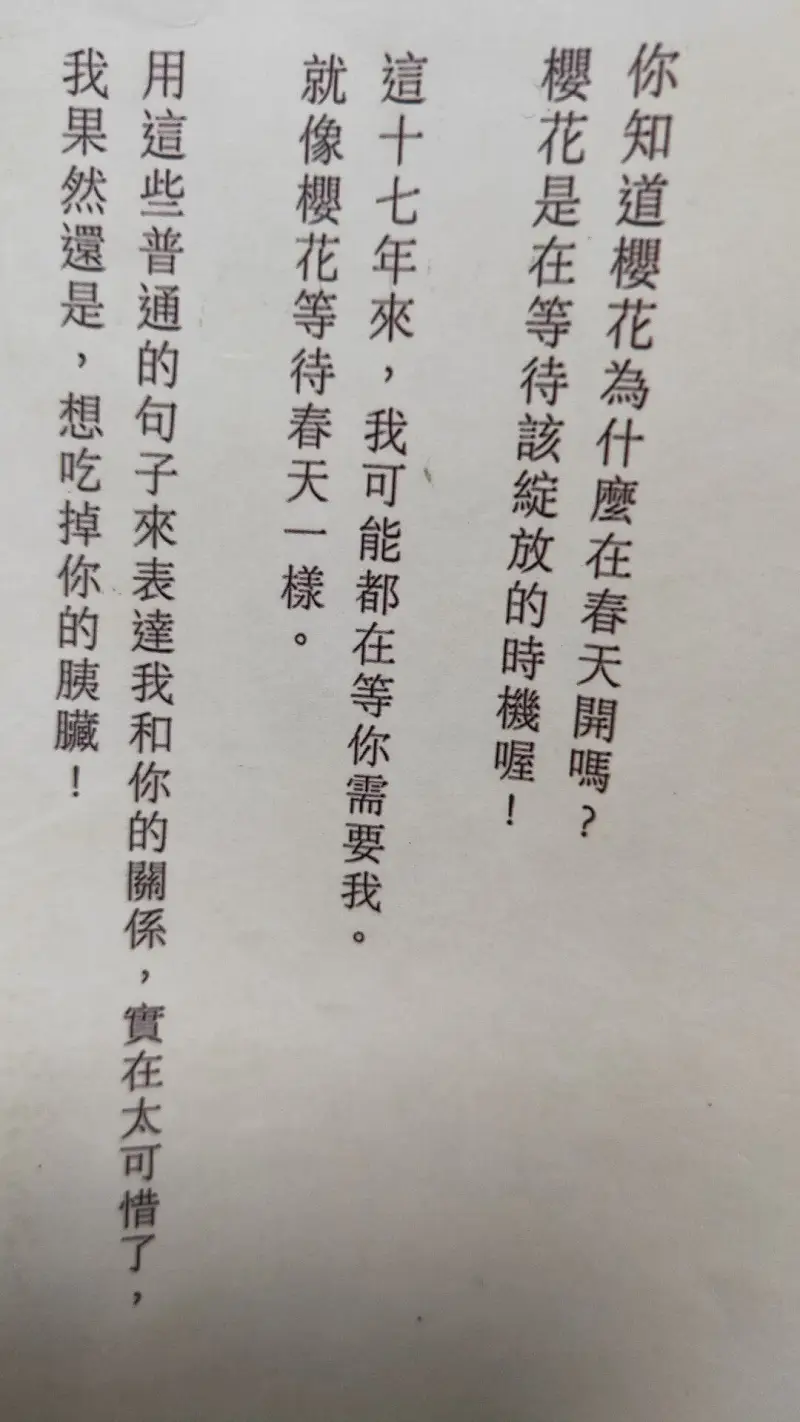 你知道櫻花為什麼在春天開嗎？
櫻花是在等待該綻放的時機喔！
這十七年來，我可能都在等你需要我。
就像櫻花等待春天一樣。
用這些普通的句子來表達我和你的關係，實在太可惜了，
我果然還是，想吃掉你的胰臟！